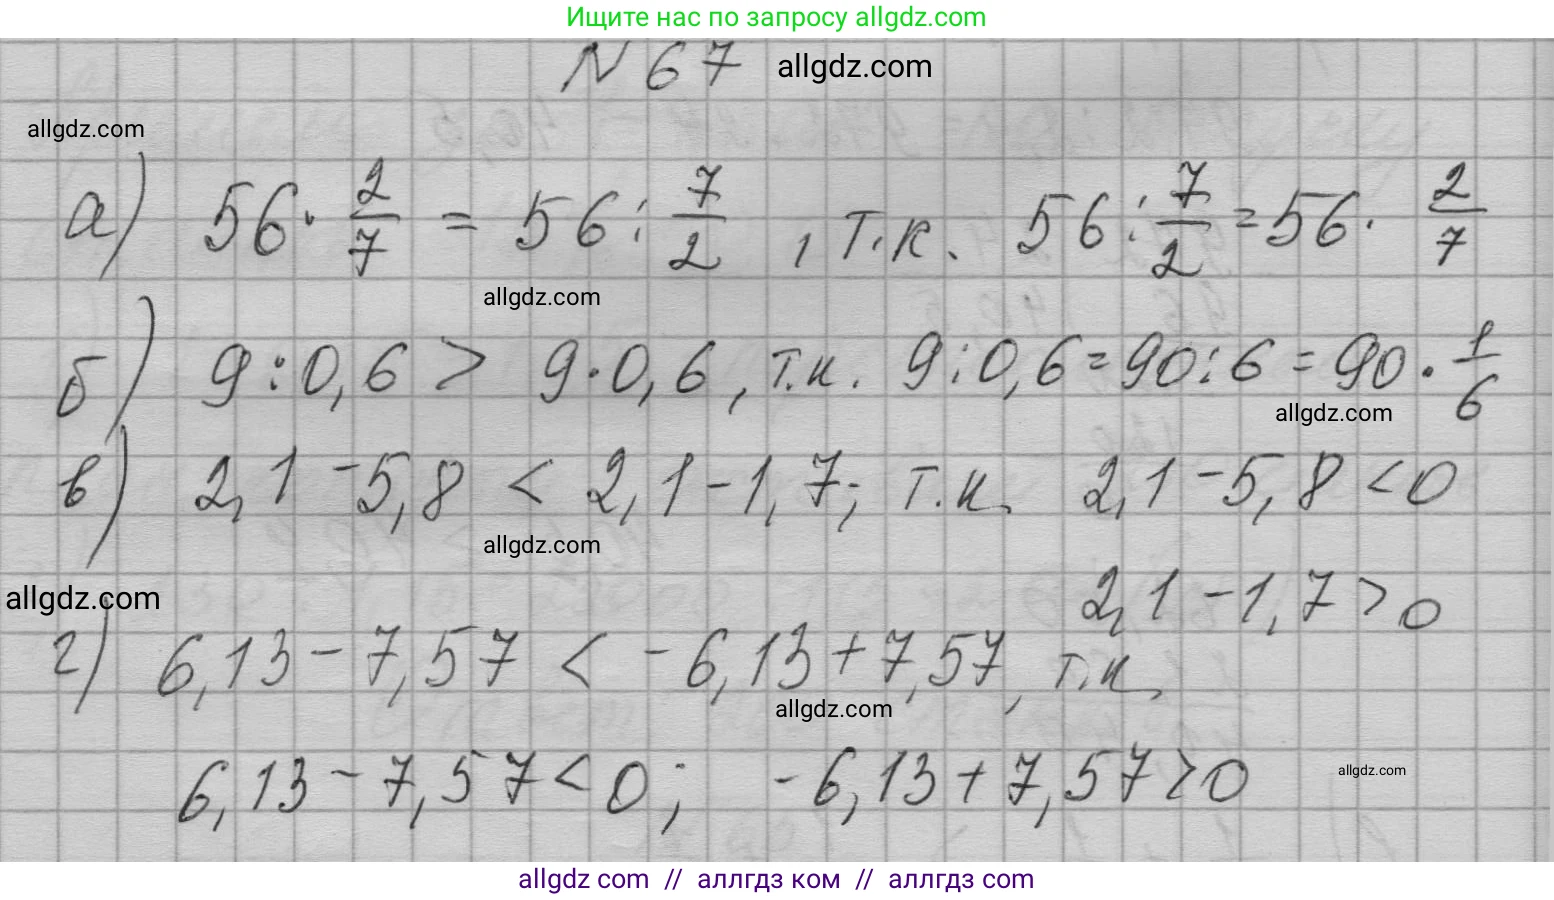 Ищите нас по запросу allgdz.com
N 67 allgdz.com
allgdz.com
а) 56 · 2/7 = 56 : 7/2 , т.к. 56 : 7/2 = 56 · 2/7
allgdz.com
б) 9 : 0,6 > 9 · 0,6 , т.к. 9 : 0,6 = 90 : 6 = 90 · 1/6
allgdz.com
в) 2,1 - 5,8 < 2,1 - 1,7; т.к. 2,1 - 5,8 < 0
allgdz.com
allgdz.com
2,1 - 1,7 > 0
г) 6,13 - 7,57 < - 6,13 + 7,57, т.к.
allgdz.com
6,13 - 7,57 < 0; - 6,13 + 7,57 > 0
allgdz.com
allgdz com // аллгдз ком // аллгдз com